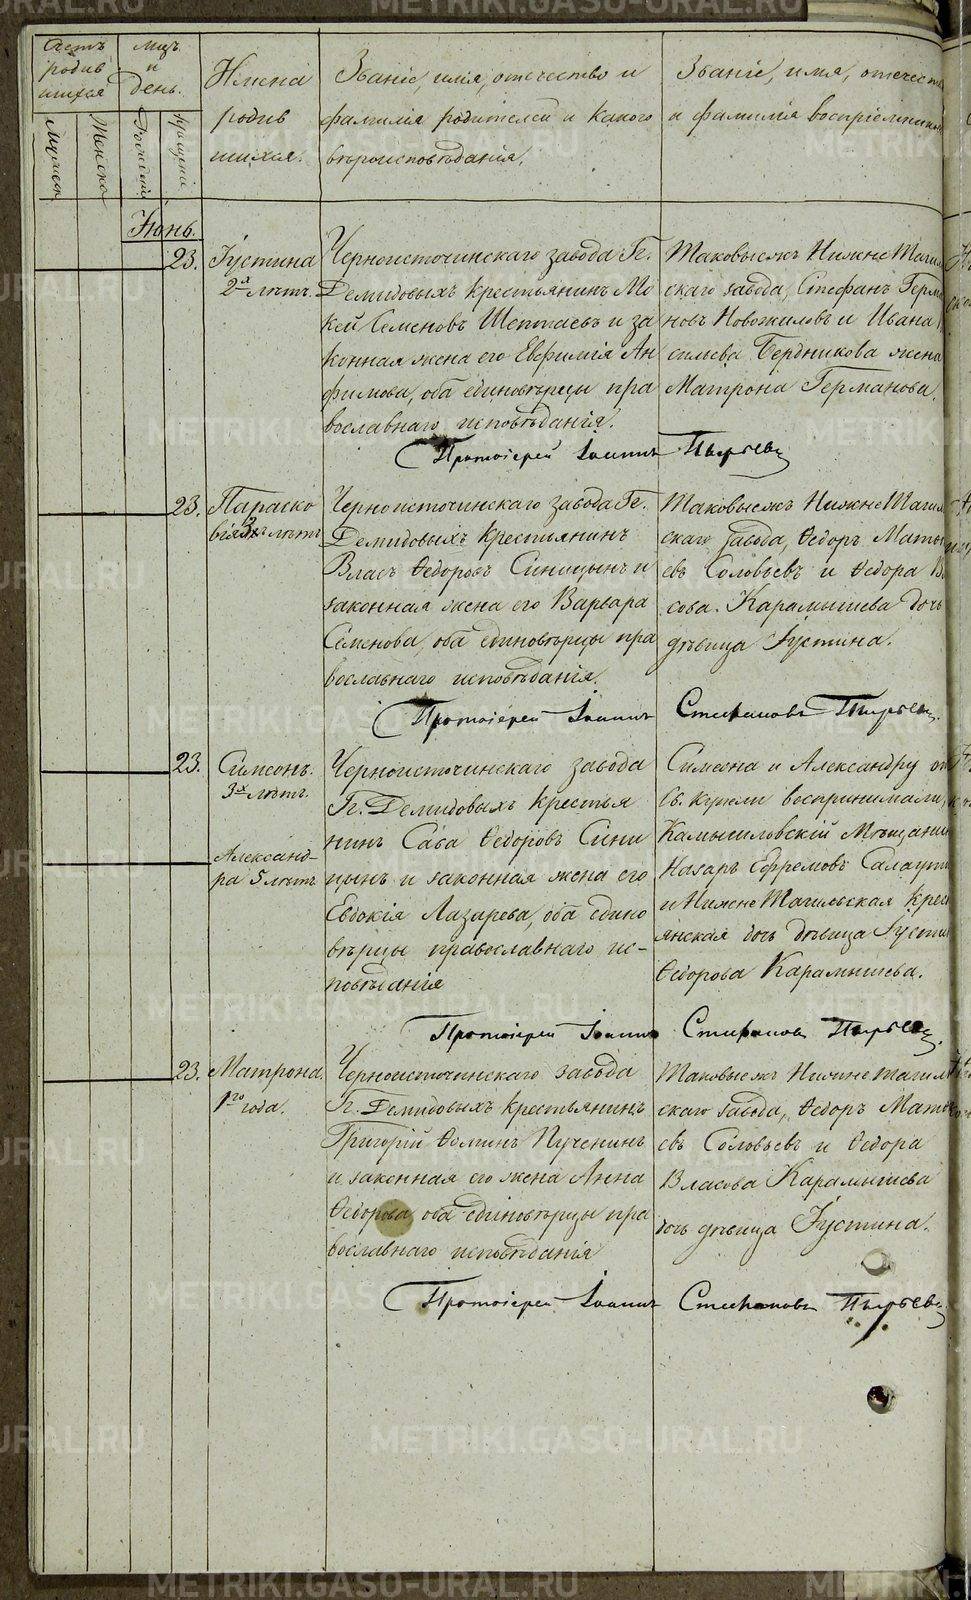 Счетъ родив шихся
Мѣц. и день.
Имена родив шихся.
Званіе, имя, отечество и
фамилія родителей и какого
вѣроисповѣданія.
Званіе, имя, отечест
и фамилія воспріемник
Мужеск
Женска
Рожденія
Крещенія
Іюнь.
23.
Іустина
2хъ лѣтъ.
Черноисточинскаго завода Гг.
Демидовыхъ крестьянинъ Мо
кей Семеновъ Шептаевъ и за
конная жена его Евфимія Ан
фимова, оба единовѣрцы пра
вославнаго исповѣданія.
Таковыежъ Нижне Тагил
скаго завода, Стефанъ Герма
новъ Новожиловъ и Ивана
сильева Бердникова жена
Матрона Германова.
Протоіерей Іоаннъ Пырьевъ
23.
Параско
вія 3хъ лѣтъ
Черноисточинскаго завода Гг.
Демидовыхъ крестьянинъ
Власъ Ѳедоровъ Синицынъ и
законная жена его Варвара
Семенова, оба единовѣрцы пра
вославнаго исповѣданія.
Таковыежъ Нижне Тагил
скаго завода, Ѳедоръ Матв
евъ Соловьевъ и Ѳедора В
сова. Карамышева дочь
дѣвица Іустина.
Протоіерей Іоаннъ Стефановъ Пырьевъ.
23.
Симеонъ.
3хъ лѣтъ.
Александ-
ра 5 лѣтъ
Черноисточинскаго завода
Гг. Демидовыхъ крестья
нинъ Сава Ѳедоровъ Сини
цынъ и законная жена его
Евдокія Лазарева, оба едино
вѣрцы православнаго ис-
повѣданія
Симеона и Александру от
Св. купели воспринимали,
Камышловскій Мѣщанин
Назаръ Ефремовъ Салаут
и Нижне Тагильская крес
янская дочь дѣвица Іусти
Ѳедорова Карамышева.
Протоіерей Іоаннъ Стефановъ Пырьевъ.
23.
Матрона
1го года.
Черноисточинскаго завода
Гг. Демидовыхъ крестьянинъ
Григорій Ѳоминъ Пученинъ
и законная его жена Анна
Ѳедорова оба единовѣрцы пра
вославнаго исповѣданія
Таковыежъ Нижне тагил
скаго завода, Ѳедоръ Матв
евъ Соловьевъ и Ѳедора
Власова Карамышева
дочь дѣвица Іустина.
Протоіерей Іоаннъ Стефановъ Пырьевъ
METRIKI.GASO-URAL.RU